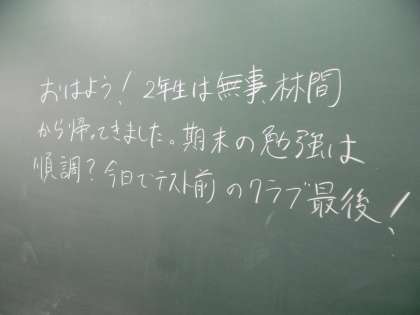 おはよう！2年生は無事、林間
から帰ってきました。期末の勉強は
順調？今日でテスト前のクラブ最後！